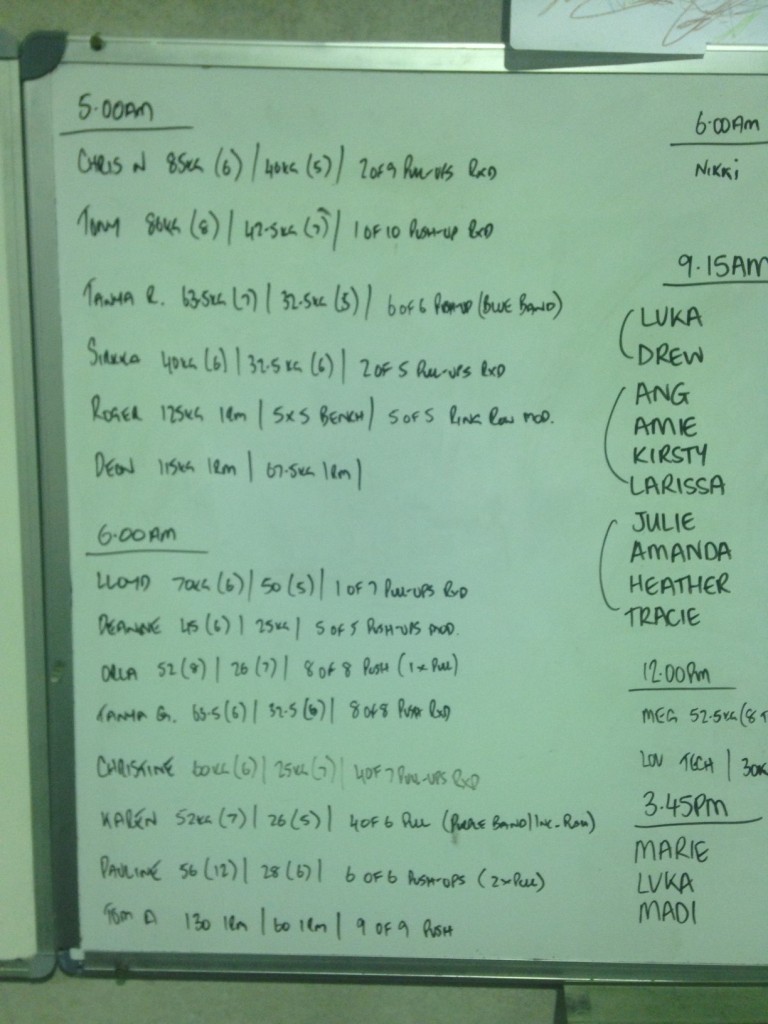 5.00AM
CHRIS N 85KG (6) | 40KG (5) | 2 OF 9 PULL-UPS RXD
TONY 80KG (8) | 42.5KG (7) | 1 OF 10 PUSH-UP RXD
TANYA R. 63.5KG (7) | 32.5KG (5) | 6 OF 6 (BLUE BAND)
40KG (6) | 32.5KG (6) | 2 OF 5 PULL-UPS RXD
ROGER 125KG 1RM | 5x5 BENCH | 5 OF 5 RING ROW MOD.
DEON 115KG 1RM | 67.5KG 1RM |
6.00AM
LLOYD 70KG (6) | 50 (5) | 1 OF 7 PULL-UPS RXD
DEANNE 45 (6) | 25KG | 5 OF 5 PUSH-UPS MOD.
ORLA 52 (8) | 26 (7) | 8 OF 8 PUSH (1x PULL)
TANYA G. 63.5 (6) | 32.5 | 8 OF 8 PUSH RXD
CHRISTINE 60KG (6) | 25KG (7) | 4 OF 7 PULL-UPS RXD
KAREN 52KG (7) | 26 (5) | 4 OF 6 PULL (PURPLE BAND
PAULINE 56 (12) | 28 (6) | 6 OF 6 PUSH-UPS (2x PULL)
TOM D 130 1RM | 60 1RM | 9 OF 9 PUSH
6.00AM
NIKKI
9.15AM
LUKA
DREW
ANG
AMIE
KIRSTY
LARISSA
JULIE
AMANDA
HEATHER
TRACIE
12.00PM
MEG 52.5KG (8
LOU TECH | 30K
3.45PM
MARIE
LUKA
MADI